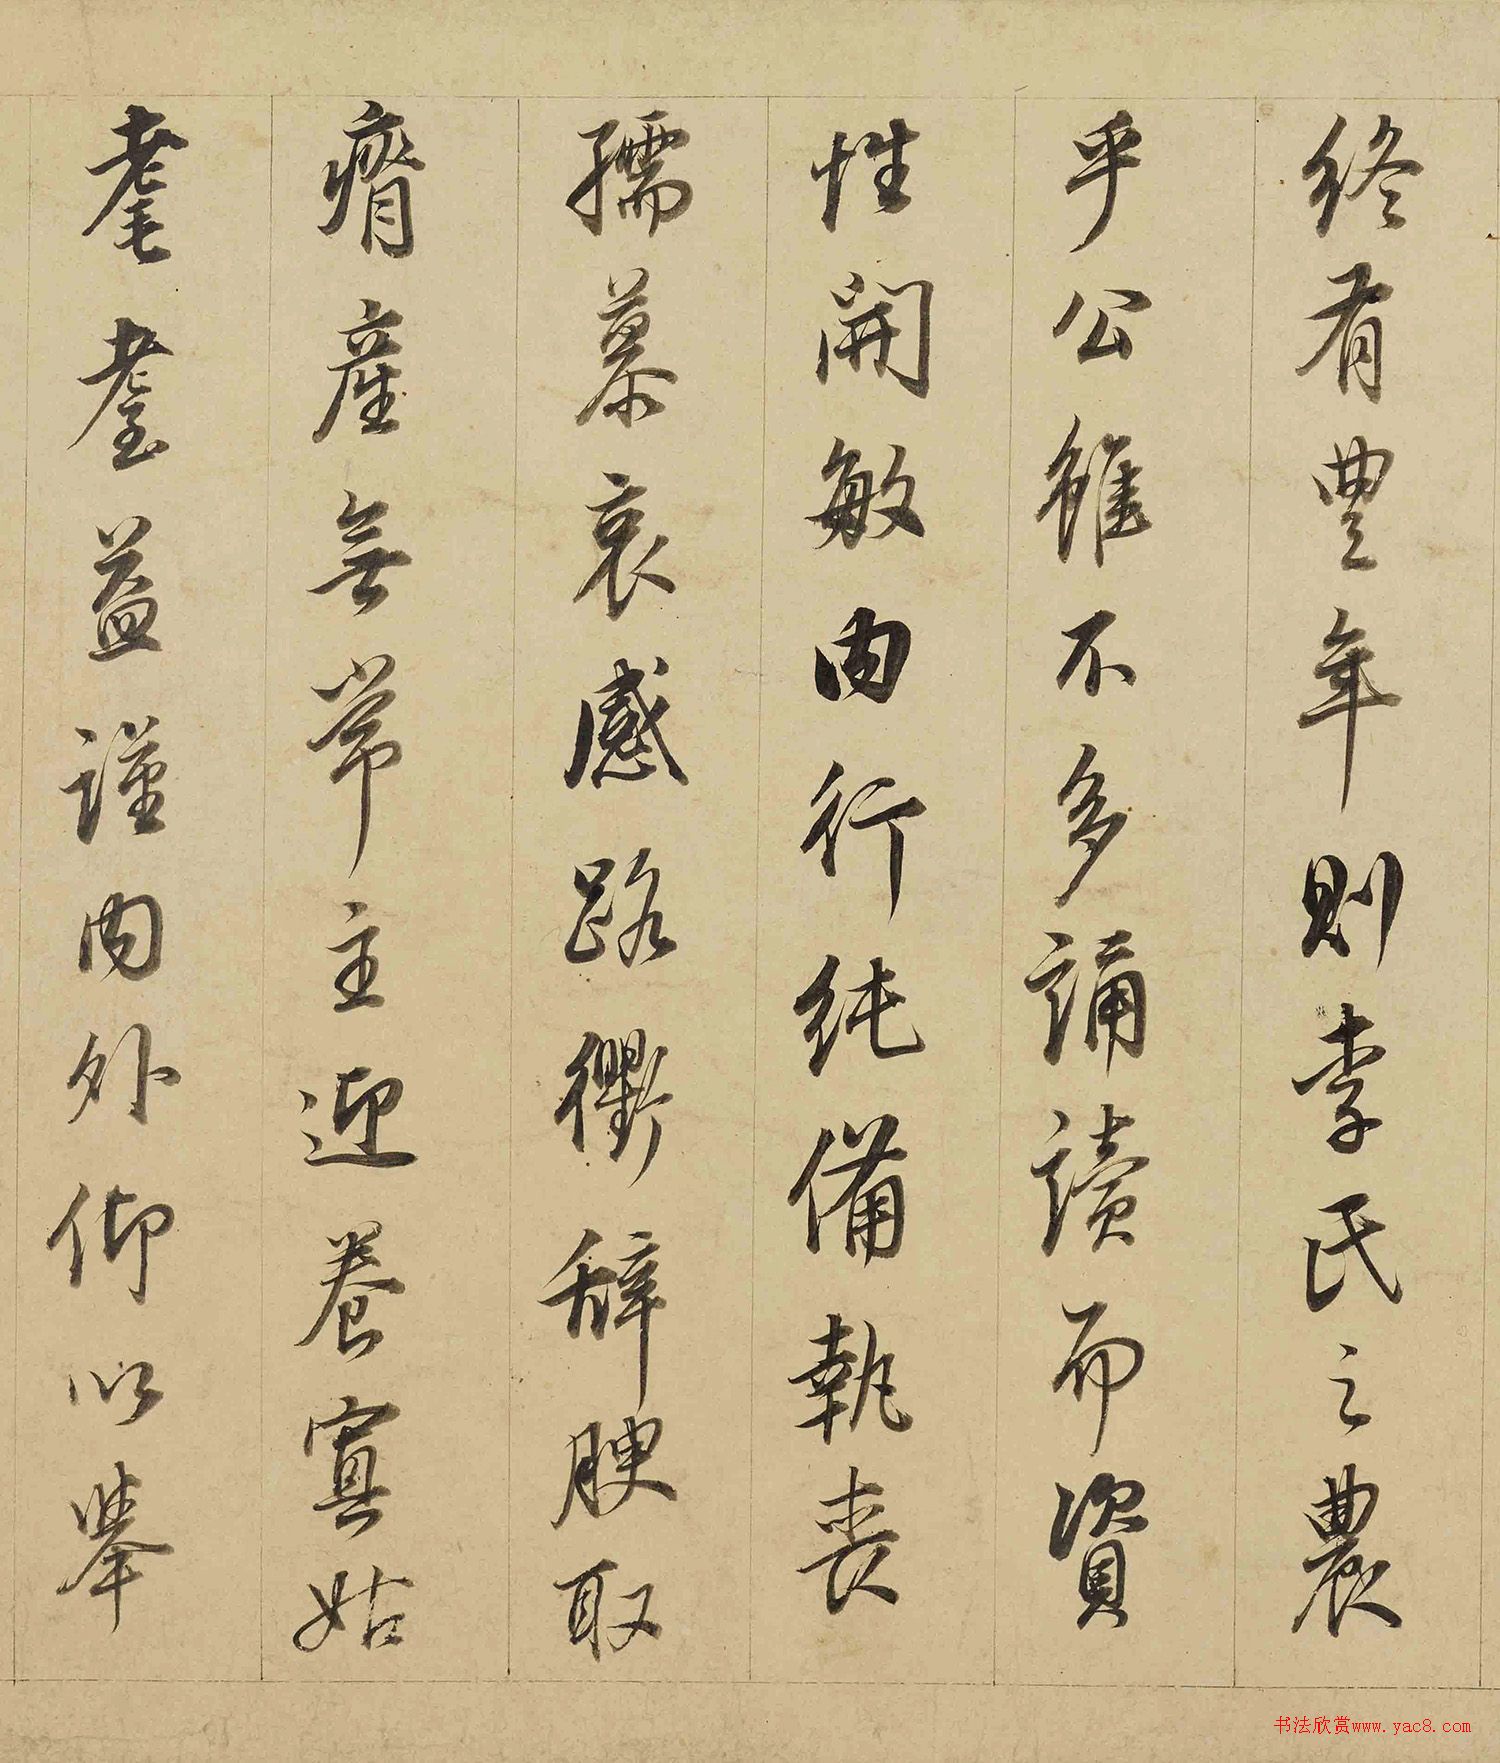 終有豐年則李氏之農
乎公雖不多誦讀而資
性開敏內行純備執喪
孺慕哀感路衢辭腴取
瘠產無常主迎養寡姑
耄耋益謹內外仰以舉
书法欣赏www.yac8.com